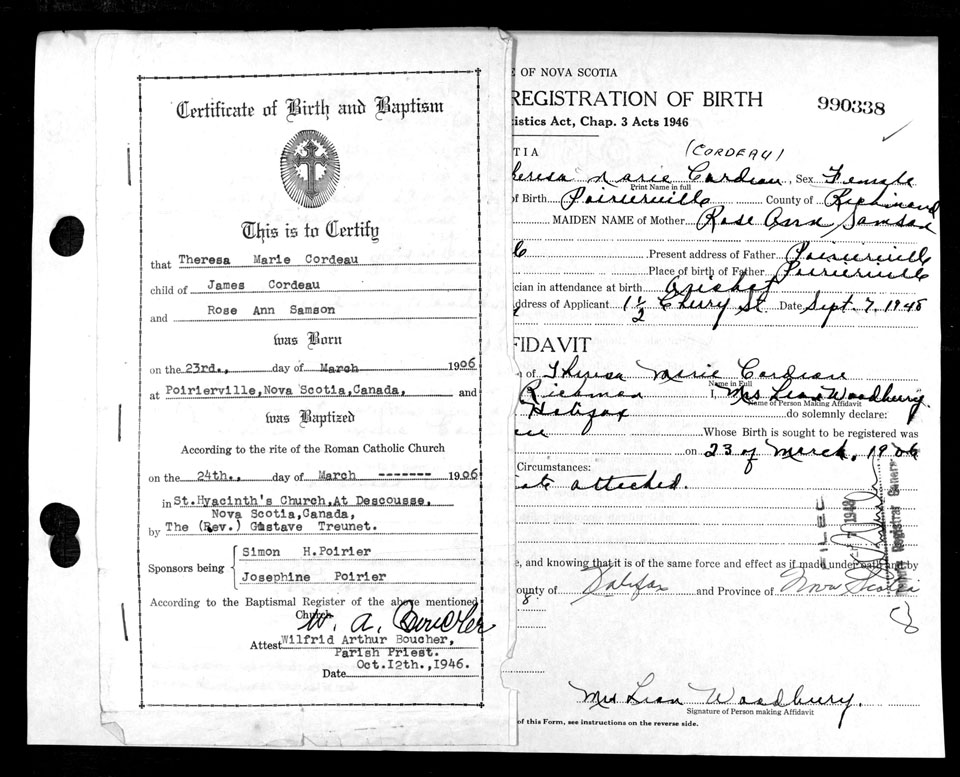 Certificate of Birth and Baptism
This is to Certify
that Theresa Marie Cordeau
child of James Cordeau
and Rose Ann Samson
was Born
on the 23rd., day of March 1906
at Poirierville,Nova Scotia,Canada, and
was Baptized
According to the rite of the Roman Catholic Church
on the 24th., day of March ------- 1906
in St.Hyacinth's Church,At Descousse,
Nova Scotia,Canada,
by The (Rev.) Gustave Treunet.
Sponsors being
Simon H.Poirier
Josephine Poirier
According to the Baptismal Register of the above mentioned
Church
W. A. Boucher
Attest Wilfrid Arthur Boucher,
Parish Priest.
Date Oct.12th.,1946.
E OF NOVA SCOTIA
REGISTRATION OF BIRTH
990338
istics Act, Chap. 3 Acts 1946
TIA (CORDEAU)
heresa Marie Cordeau, Sex Female
Print Name in full
of Birth Poirierville County of Richmond
MAIDEN NAME of Mother Rose Ann Samson
Present address of Father Poirierville
Place of birth of Father Poirierville
ician in attendance at birth
ddress of Applicant 1 1/2 Cherry St Date Sept. 7, 1948
FIDAVIT
n of Theresa Marie Cordeau
Name in Full
Richmon I, Mrs Leon Woodbury
Name of Person Making Affidavit
Halifax do solemnly declare:
Whose Birth is sought to be registered was
on 23 of March, 1906
Circumstances:
ate attached.
FILED
1948
Deputy Registrar General
e, and knowing that it is of the same force and effect as if made under oath and by
ounty of Halifax and Province of Nova Scotia
8
Mrs Leon Woodbury.
Signature of Person making Affidavit
of this Form, see instructions on the reverse side.